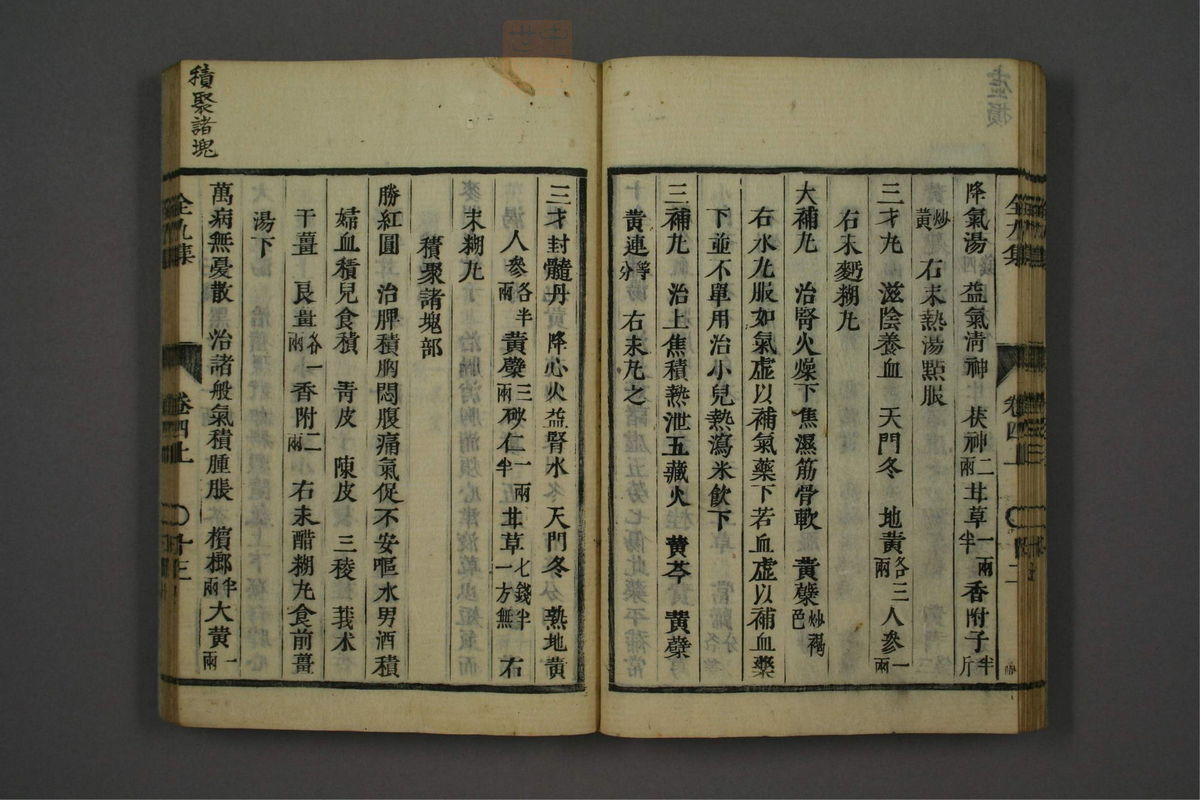 虚損
降氣湯 益氣清神 茯神二兩 甘草一兩半 香附子半斤
炒黄 右末熱湯㸃服
三才丸 滋陰養血 天門冬 地黄各二三兩 人參一兩
右末麪糊丸
大補丸 治腎火燥下焦濕筋骨軟 黄蘗炒褐色
右水丸服如氣虚以補氣藥下若血虚以補血藥
下並不單用治小兒熱瀉米飲下
三補丸 治上焦積熱泄五藏火 黄芩 黄蘗
黄連等分 右末丸之
三才封髓丹 降心火益腎水 天門冬 熟地黄
人參各半兩 黄蘗三兩 砂仁一兩半 甘草七錢半一方無 右
末糊丸
積聚諸塊部
勝紅圓 治脾積胸悶腹痛氣促不安嘔水男酒積
婦血積兒食積 靑皮 陳皮 三稜 莪朮
干薑 良薑各一兩 香附二兩 右末醋糊丸食前薑
湯下
萬病無憂散 治諸般氣積腫脹 檳榔半兩 大黄一兩
全九集 卷四上 十三
積聚諸塊